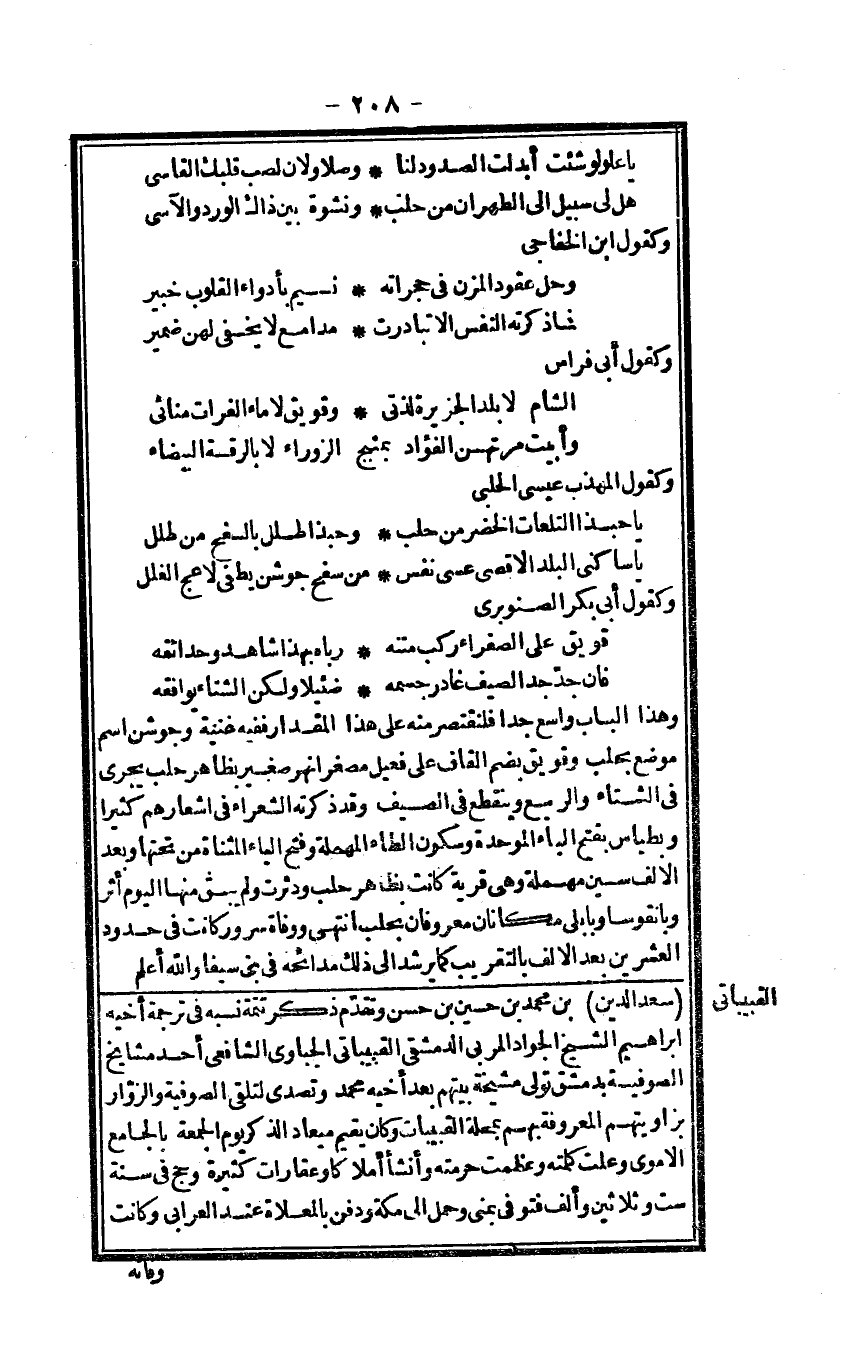 - ٢٠٨ -
يا علو لو شئت أبدلت الصدود لنا * وصلا ولان لصب قلبك القاسى
هل لى سبيل الى الظهران من حلب * ونشوة بين ذاك الورد والآسى
وكقول ابن الخفاجى
وحل عقود المزن فى حجراته * نسيم بأدواء القلوب خبير
فاذكرته النفس الا تبادرت * مدامع لا يخفى لهن ضمير
وكقول أبى فراس
الشام لا بلد الجزيرة لذتى * وقويق لا ماء الفرات منائى
وأبيت مرتهن الفؤاد بمنبج الزوراء لا بالرقة البيضاء
وكقول المهذب عيسى الحلبى
يا حبذا التلعات الخضر من حلب * وحبذا طلل بالسفح من طلل
يا ساكنى البلد الاقصى عسى نفس * من سفح جوشن يطفى لاعج الغلل
وكقول أبى بكر الصنوبرى
قويق على الصفراء ركب متنه * رباه بهذا شاهد وحدائقه
فان جدّ جد الصيف غادر جسمه * ضئيلا ولكن الشتاء يوافقه
وهذا الباب واسع جدا فلنقتصر منه على هذا المقدار ففيه غنية وجوشن اسم
موضع بحلب وقويق بضم القاف على فعيل مصغرا نهر صغير بظاهر حلب يجرى
فى الشتاء والربيع وينقطع فى الصيف وقد ذكرته الشعراء فى اشعارهم كثيرا
وبطياس بفتح الباء الموحدة وسكون الطاء المهملة وفتح الياء المثناة من تحتها وبعد
الالف سين مهملة وهى قرية كانت بظاهر حلب ودثرت ولم يبق منها اليوم أثر
وبانقوسا وبابلى مكانان معروفان بحلب انتهى ووفاة سرور كانت فى حدود
العشرين بعد الالف بالتقريب كما يرشد الى ذلك مدائحه فى بنى سيفا والله أعلم
القبيباتى
(سعد الدين) بن محمد بن حسين بن حسن وتقدّم ذكر تتمة نسبه فى ترجمة أخيه
ابراهيم الشيخ الجواد المربى الدمشقى القبيباتى الجباوى الشافعى أحد مشايخ
الصوفية بدمشق تولى مشيخة بيتهم بعد أخيه محمد وتصدى لتلقى الصوفية والزوّار
بزاويتهم المعروفة بهم بمحلة القبيبات وكان يقيم ميعاد الذكر يوم الجمعة بالجامع
الاموى وعلت كلمته وعظمت حرمته وأنشأ أملاكا وعقارات كثيرة وحج فى سنة
ست وثلاثين وألف فتوفى بمنى وحمل الى مكة ودفن بالمعلاة عند العرابى وكانت
وفاته